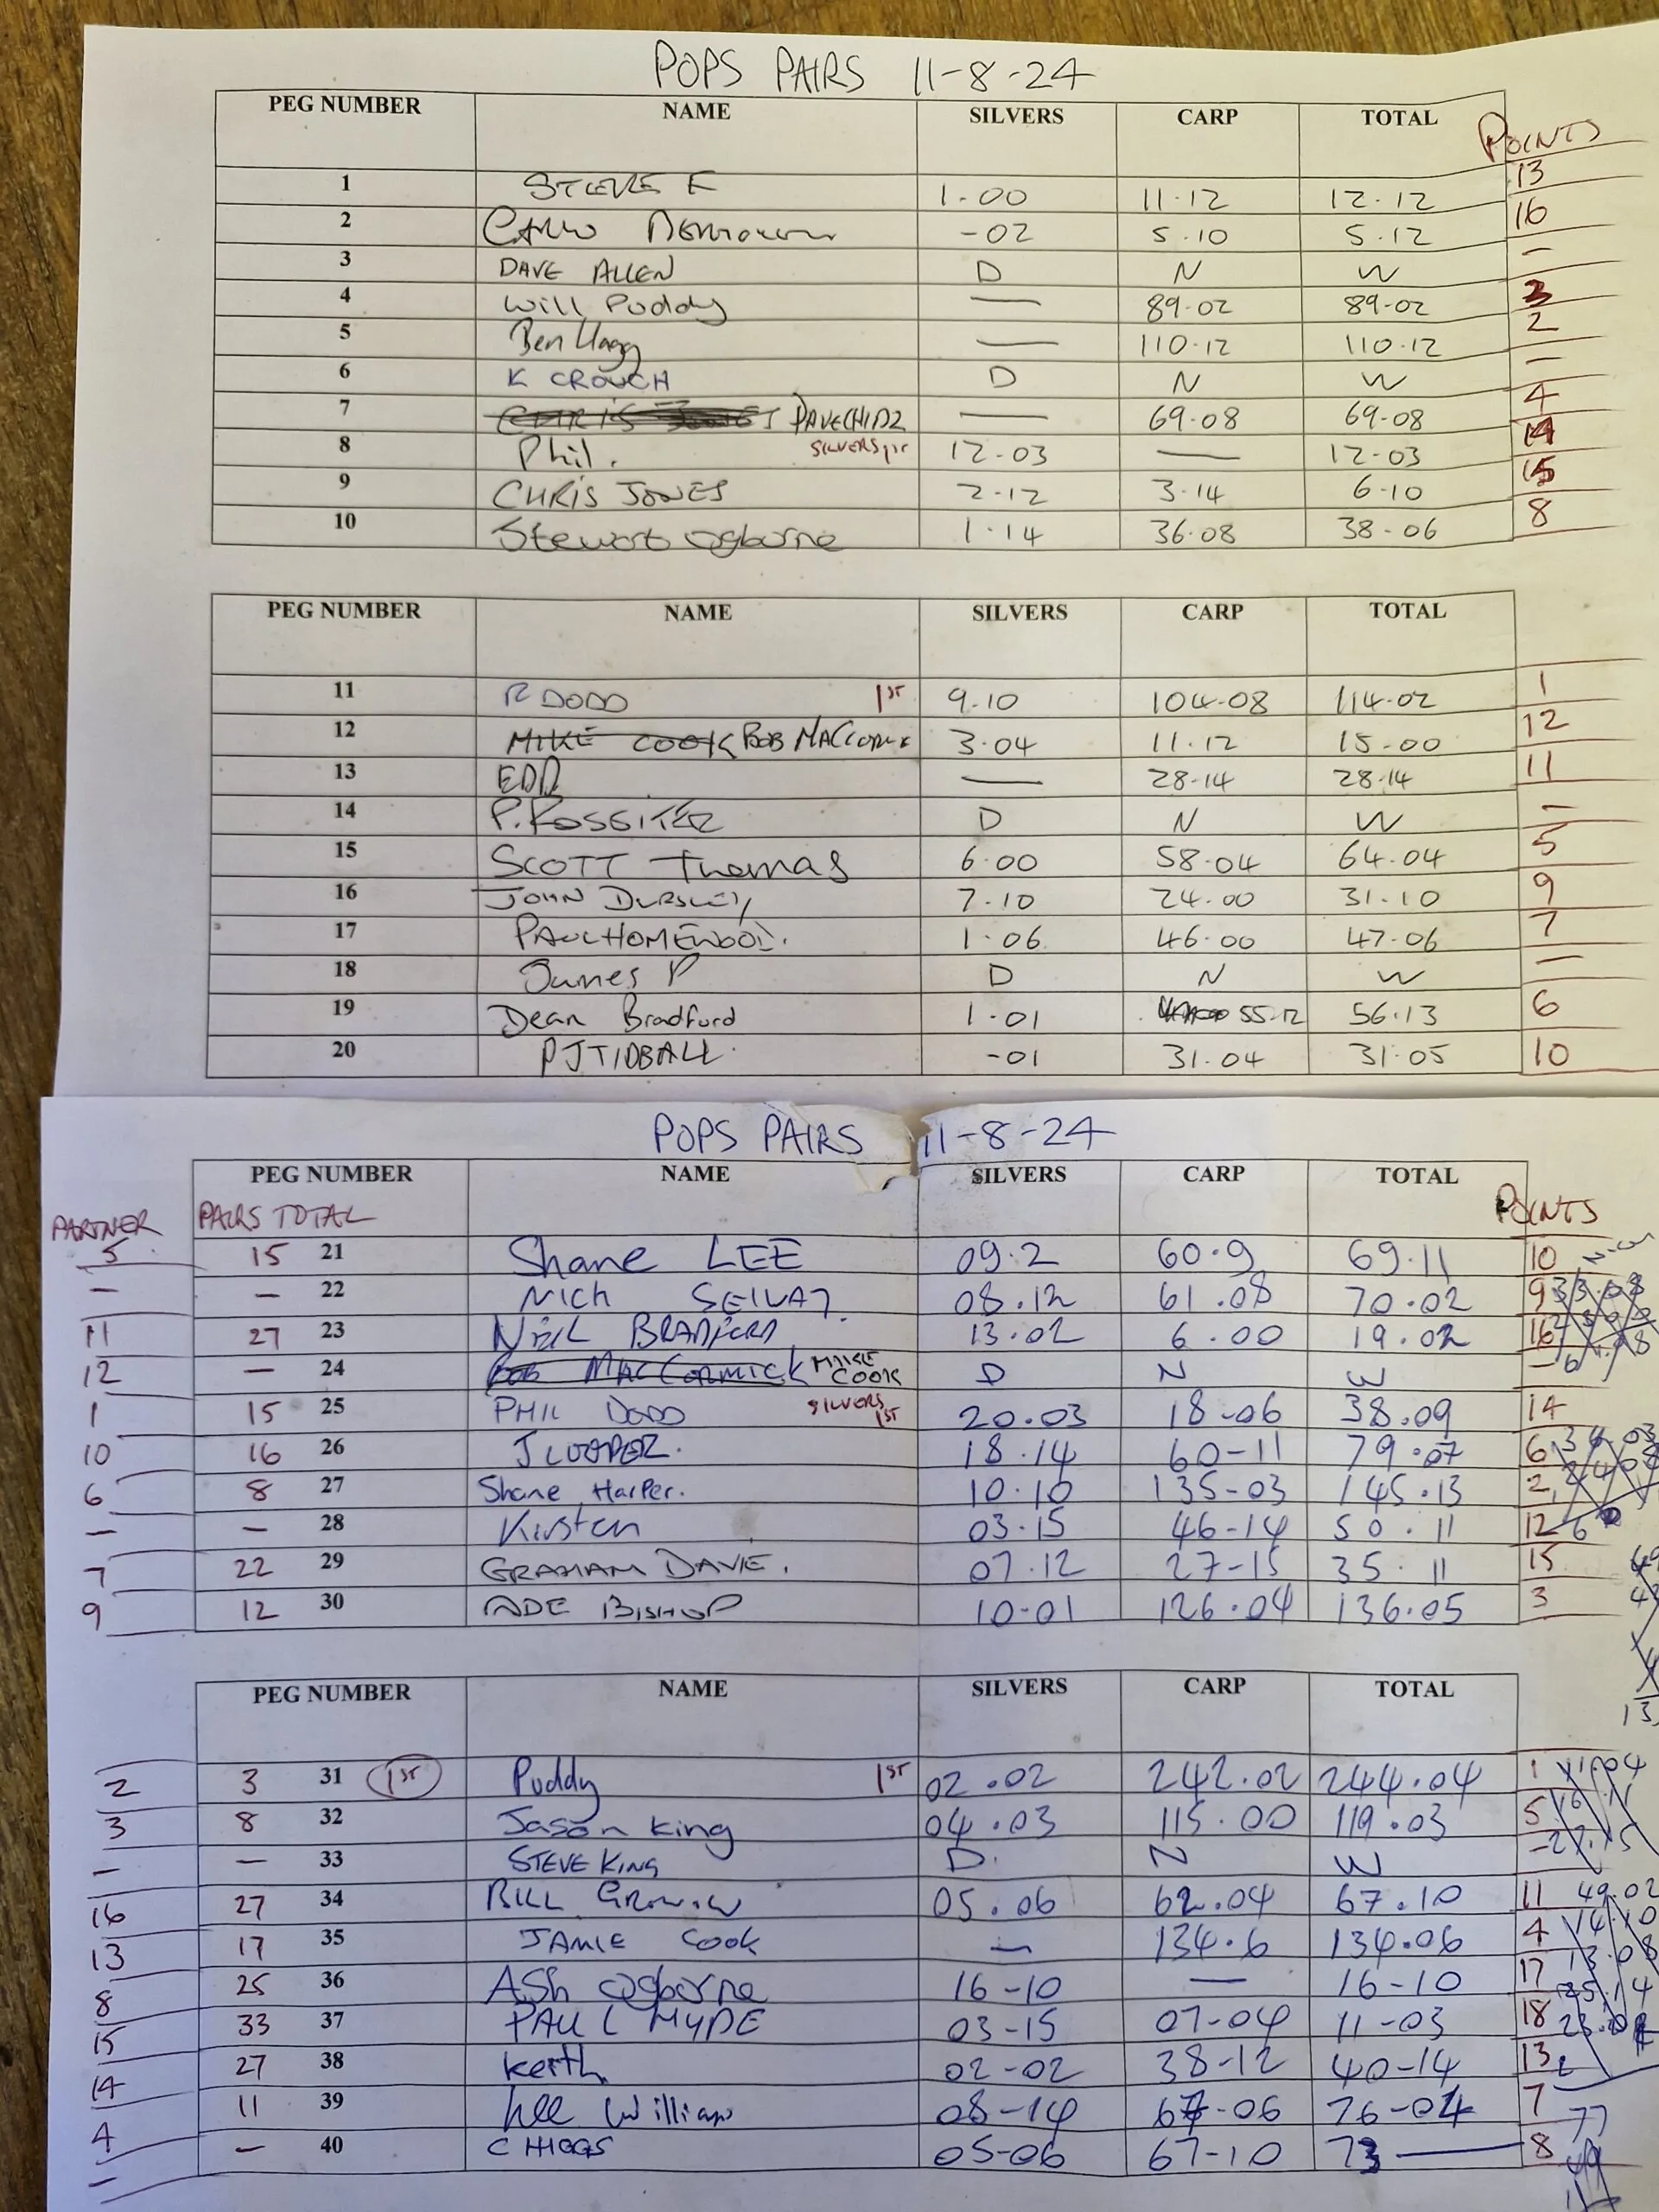 POPS PAIRS 11-8-24
PEG NUMBER NAME SILVERS CARP TOTAL POINTS
1 STEVE F 1-00 11-12 12-12 13
2 -02 5-10 5-12 16
3 DAVE ALLEN D N W -
4 Will Puddy — 89-02 89-02 3
5 Ben Hagg — 110-12 110-12 2
6 K CROUCH D N W -
7 DAVE CHIDZ — 69-08 69-08 4
8 Phil. SILVERS 1ST 12-03 — 12-03 14
9 CHRIS JONES 2-12 3-14 6-10 15
10 Stewart Ogborne 1-14 36-08 38-06 8
PEG NUMBER NAME SILVERS CARP TOTAL
11 R DODD 1ST 9-10 104-08 114-02 1
12 MIKE COOK BOB MACCORMK 3-04 11-12 15-00 12
13 EDD — 28-14 28-14 11
14 P. ROSSITER D N W -
15 SCOTT Thomas 6-00 58-04 64-04 5
16 JOHN DURSLEY 7-10 24-00 31-10 9
17 PAUL HOMEWOOD. 1-06 46-00 47-06 7
18 James P D N W -
19 Dean Bradford 1-01 55-12 56-13 6
20 PJ TIDBALL -01 31-04 31-05 10
POPS PAIRS 11-8-24
PEG NUMBER NAME SILVERS CARP TOTAL
PARTNER PAIRS TOTAL POINTS
5 15 21 Shane LEE 09.2 60.9 69.11 10
- - 22 Nick 08.12 61.08 70.02 9
11 27 23 NEIL BRADFORD 13.02 6.00 19.02 16
12 - 24 BOB MACCORMICK MIKE COOK D N W -
1 15 25 PHIL DODD SILVERS 1ST 20.03 18-06 38.09 14
10 16 26 J COOPER. 18.14 60-11 79.07 6
6 8 27 Shane Harper. 10.10 135-03 145.13 2
- - 28 Kirsten 03.15 46-14 50.11 12
7 22 29 GRAHAM DAVIE. 07.12 27-15 35.11 15
9 12 30 ADE BISHOP 10-01 126.04 136.05 3
PEG NUMBER NAME SILVERS CARP TOTAL
2 3 31 1ST Puddy 1ST 02.02 242.02 244.04 1
3 8 32 Jason King 04.03 115.00 119.03 5
- - 33 STEVE KING D. N W -
16 27 34 BILL 05.06 62.04 67.10 11
13 17 35 JAMIE COOK — 134.6 134.06 4
8 25 36 ASh Ogborne 16-10 — 16-10 17
15 33 37 PAUL HYDE 03-15 07-04 11-03 18
14 27 38 Keith 02-02 38-12 40-14 13
4 11 39 Lee Williams 08-14 67-06 76-04 7
- - 40 C HIGGS 05-06 67-10 73 — 8